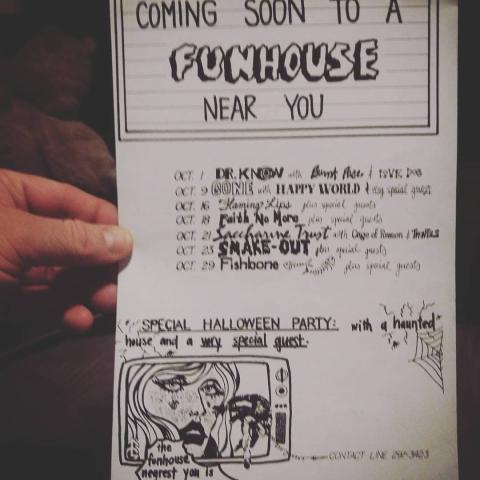 COMING SOON TO A
FUNHOUSE
NEAR YOU
OCT. 1 DR. KNOW with Burnt Pase & LOVE DOG
OCT. 9 GONE with HAPPY WORLD & very special guest
OCT. 16 Flaming Lips plus special guests
OCT. 18 Faith No More plus special guests
OCT. 21 Saccharine Trust with Cage of Reason &
OCT. 23 SNAKE-OUT plus special guests
OCT. 29 Fishbone plus special guests
SPECIAL HALLOWEEN PARTY: with a haunted
house and a very special guest.
the
funhouse
nearest you is
CONTACT LINE